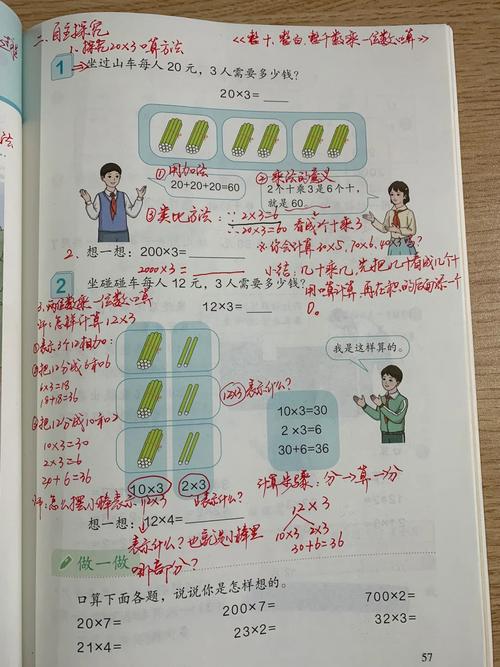 二、自主探究
1、探究20×3口算方法
《整十、整百、整千数乘一位数口算》
1 坐过山车每人 20 元，3 人需要多少钱？
20×3=
①用加法
20+20+20=60
②乘法的意义
2 个十乘3是6个十，
就是 60
③类比方法：∵2×3=6
∴20×3=60 看成2个十乘3
想一想：200×3=
※你会计算30×5，70×6，40×3吗？
2000×3=
小结：几十乘几，先把几十看成几个十
用口算计算，再在积的后面添一个
0。
2 坐碰碰车每人 12 元，3 人需要多少钱？
12×3=
3、两位数乘一位数口算
师：怎样计算12×3
①表示3个12相加：
②把12分成6和6
6×3=18
18+18=36
③把12分成10和2
10×3=30
2×3=6
30+6=36
12×3表示什么？
我是这样算的。
10×3=30
2×3=6
30+6=36
10×3
2×3
计算步骤：分→算→分
师：怎么摆小棒表示12×3
表示什么？
12×3
10×3 2×3
30+6=36
想一想：12×4=
表示什么？也就是小棒里
哪部分？
做一做
口算下面各题，说说你是怎样想的。
20×7=
200×7=
700×2=
21×4=
23×2=
32×3=
57